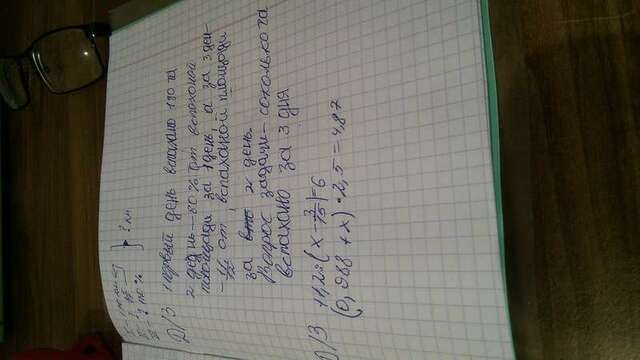 Д/З 1 первый день вспахано 190 га
2 день — 80% от вспаханой
площади за 1 день, а за 3 ден-
от вспаханой площади
за 2 день.
Вопрос задачи - сколько га
вспахано за 3 дня
Д/З 11,2:(x - 3/15)=6
(0,988 + x) · 2,5 = 4,87